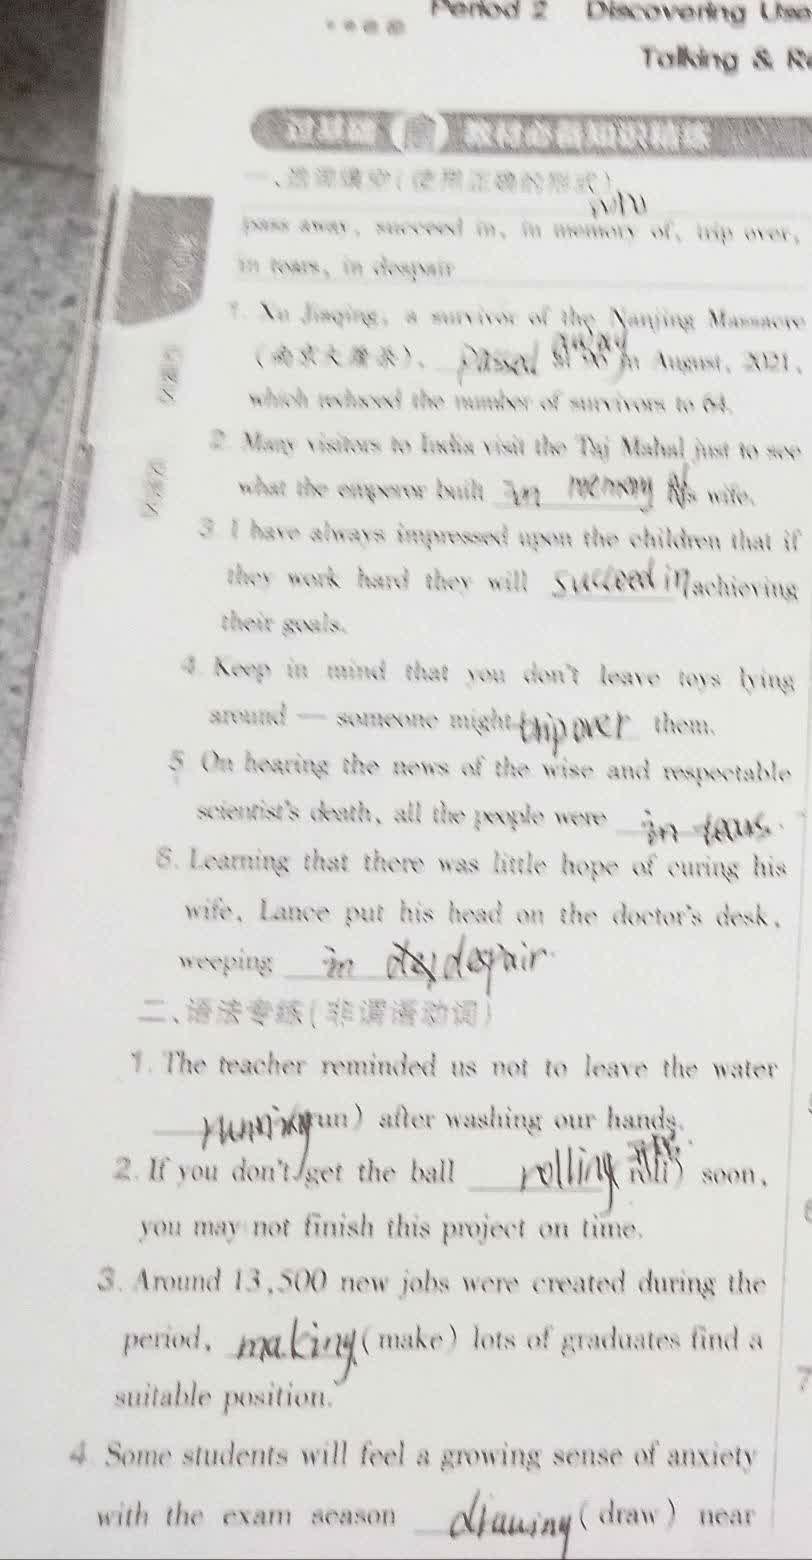 Period 2 Discovering Use
Talking & Re
过基础 教材必备知识精练
一、选词填空(使用正确的形式)
pass away, succeed in, in memory of, trip over,
in tears, in despair
1. Xu Jiaqing, a survivor of the Nanjing Massacre
(南京大屠杀), passed away at 96 in August, 2021,
which reduced the number of survivors to 64.
2. Many visitors to India visit the Taj Mahal just to see
what the emperor built in memory of his wife.
3. I have always impressed upon the children that if
they work hard they will succeed in achieving
their goals.
4. Keep in mind that you don't leave toys lying
around — someone might trip over them.
5. On hearing the news of the wise and respectable
scientist's death, all the people were in tears.
6. Learning that there was little hope of curing his
wife, Lance put his head on the doctor's desk,
weeping in despair.
二、语法专练(非谓语动词)
1. The teacher reminded us not to leave the water
running (run) after washing our hands.
2. If you don't get the ball rolling (roll) soon,
you may not finish this project on time.
3. Around 13,500 new jobs were created during the
period, making (make) lots of graduates find a
suitable position.
4. Some students will feel a growing sense of anxiety
with the exam season drawing (draw) near
7